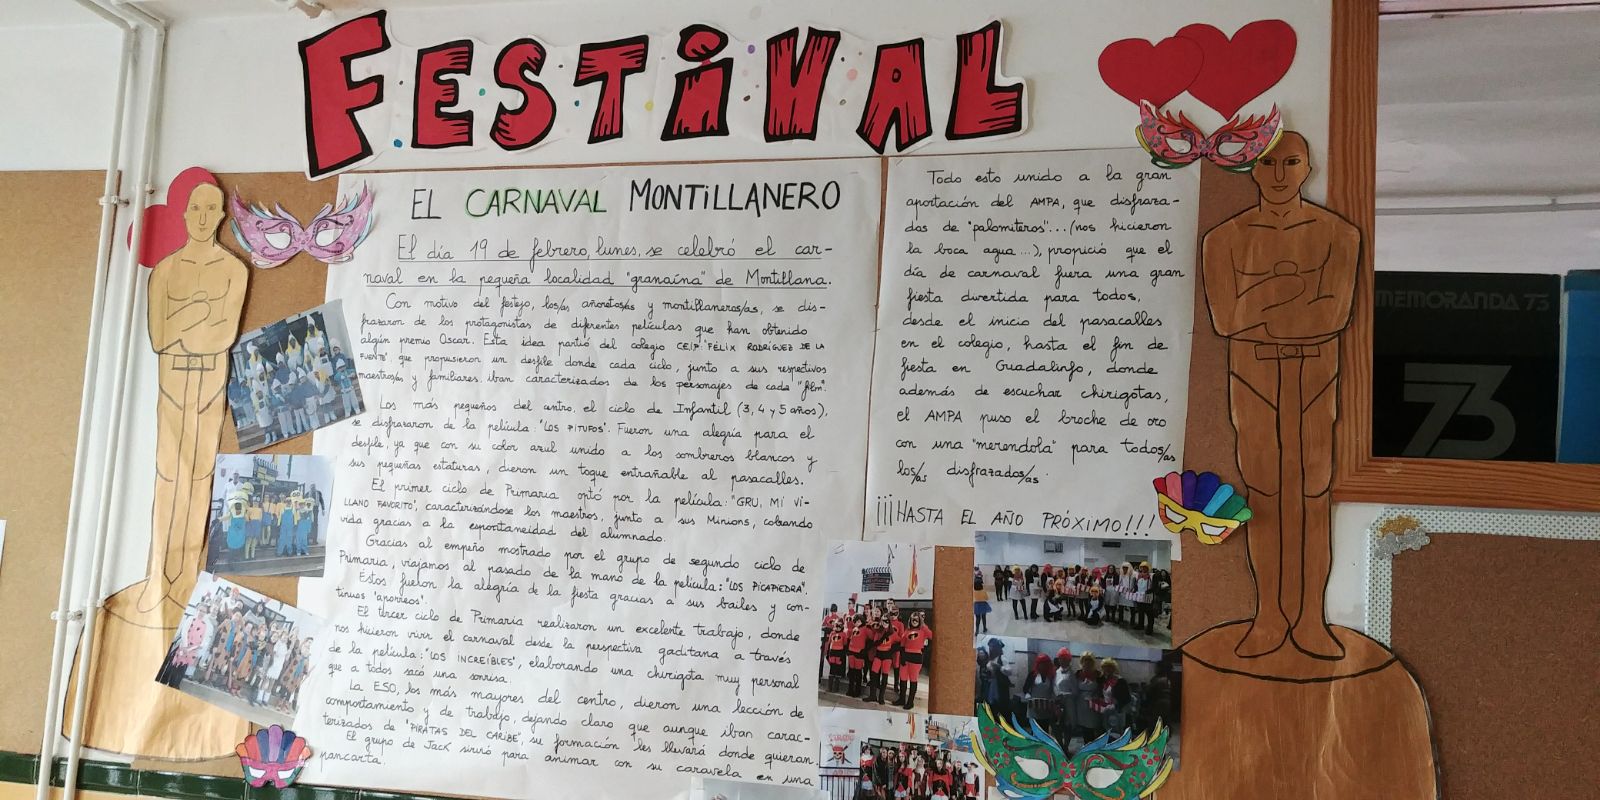 FESTIVAL
EL CARNAVAL MONTILLANERO
El día 19 de febrero, lunes, se celebró el car-
naval en la pequeña localidad "granaína" de Montillana.
Con motivo del festejo, los/as añoretos/as y montillaneros/as, se dis-
frazaron de los protagonistas de diferentes películas que han obtenido
algún premio Oscar. Esta idea partió del colegio C.E.I.P. "FÉLIX RODRÍGUEZ DE LA
FUENTE", que propusieron un desfile donde cada ciclo, junto a sus respectivos
maestros/as y familiares iban caracterizados de los personajes de cada "film".
Los más pequeños del centro, el ciclo de Infantil (3, 4 y 5 años),
se disfrazaron de la película: "LOS PITUFOS". Fueron una alegría para el
desfile, ya que con su color azul unido a los sombreros blancos y
sus pequeñas estaturas, dieron un toque entrañable al pasacalles.
El primer ciclo de Primaria optó por la película: "GRU, MI VI-
LLANO FAVORITO", caracterizándose los maestros, junto a sus Minions, cobrando
vida gracias a la espontaneidad del alumnado.
Gracias al empeño mostrado por el grupo de segundo ciclo de
Primaria, viajamos al pasado de la mano de la película: "LOS PICAPIEDRA".
Éstos fueron la alegría de la fiesta gracias a sus bailes y con-
tinuos "aporreos".
El tercer ciclo de Primaria realizaron un excelente trabajo, donde
nos hicieron vivir el carnaval desde la perspectiva gaditana a través
de la película: "LOS INCREÍBLES", elaborando una chirigota muy personal
que a todos sacó una sonrisa.
La ESO, los más mayores del centro, dieron una lección de
comportamiento y de trabajo, dejando claro que aunque iban carac-
terizados de "PIRATAS DEL CARIBE", su formación les llevará donde quieran.
El grupo de Jack sirvió para animar con su caravela en una
pancarta.
Todo esto unido a la gran
aportación del AMPA, que disfraza-
dos de "palomiteros"... (nos hicieron
la boca agua...), propició que el
día de carnaval fuera una gran
fiesta divertida para todos,
desde el inicio del pasacalles
en el colegio, hasta el fin de
fiesta en Guadalinfo, donde
además de escuchar chirigotas,
el AMPA puso el broche de oro
con una "merendola" para todos/as
los/as disfrazados/as.
¡¡¡HASTA EL AÑO PRÓXIMO!!!
MEMORANDA 73
73